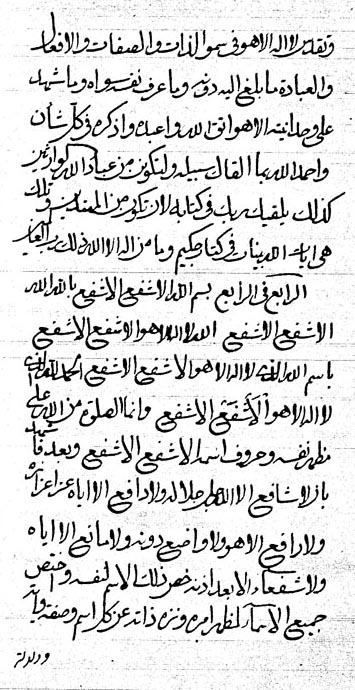 وتقدس لا اله الا هو في سمو الذات والصفات والافعال
والعبادة ما بلغ اليه دونه وما عرف نفسه سواه وما شهد
على وحدانيته الا هو اتق الله واعبده واذكره في كل شأن
واحمد الله بما القاك سبيله ولتكونن من عباد الله
كذلك يلقيك ربك في كتابه لان تكونن من المهتدين وتلك
هي ايات الله بينات في كتاب حكيم وما من اله الا الله ذلك رب العالمين
الرابع في الرابع بسم الله الاشفع الاشفع بالله الله
الاشفع الاشفع الله لا اله الا هو الاشفع الاشفع
باسم الله الذي لا اله الا هو الاشفع الاشفع الحمد لله الذي
لا اله الا هو الاشفع الاشفع وانما الصلوة من الله على
مظهر نفسه وحروف اسمه الاشفع الاشفع وبعد فاشهد
بان لا شافع الا الله جل جلاله ولا دافع الا اياه عز اعزازه
ولا رافع الا هو ولا واضع دونه ولا مانع الا اياه
ولا شفعاء الا بعد اذنه خص ذلك الاسم لنفسه واختص
جميع الاسماء لمظهر امره ونزه ذاته عن كل اسم وصفة وانه
ودلالة